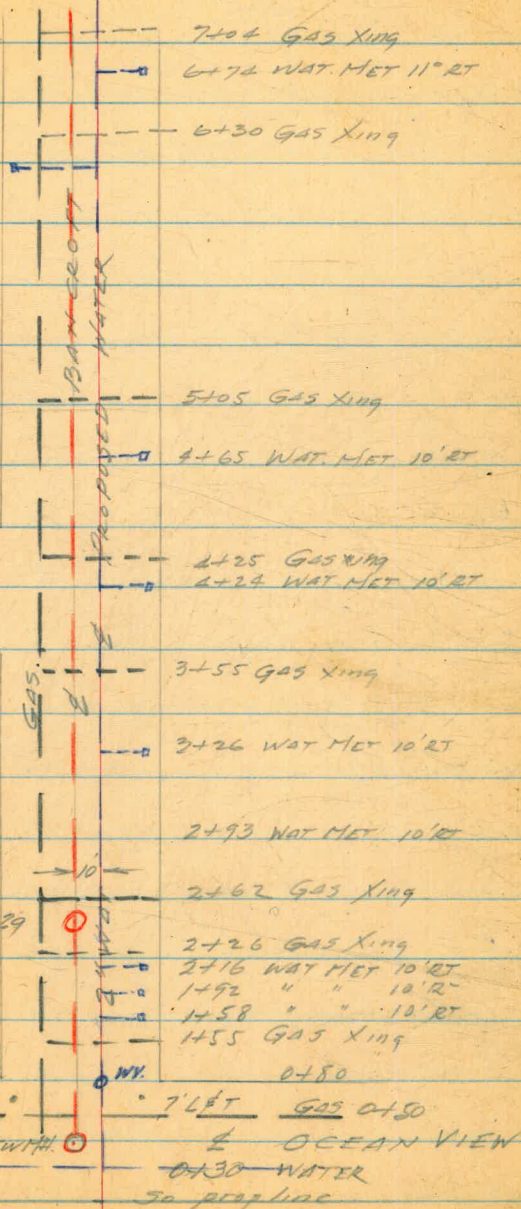 7+04 Gas Xing
6+74 WAT. MET 11' RT
6+30 Gas Xing
BANCROFT
PROPOSED WATER
5+05 Gas Xing
4+65 WAT. MET 10' RT
4+25 Gas Xing
4+24 WAT MET 10' RT
3+55 GAS Xing
GAS.
℄
℄
3+26 WAT MET 10' RT
2+93 WAT MET 10' RT
10'
2+62 Gas Xing
29
2+26 Gas Xing
2+16 WAT MET 10' RT
1+92 " " 10' R
1+58 " " 10' RT
1+55 Gas Xing
WV.
0+80
GAS 0+50
℄ OCEAN VIEW
0+30 WATER
So prop line